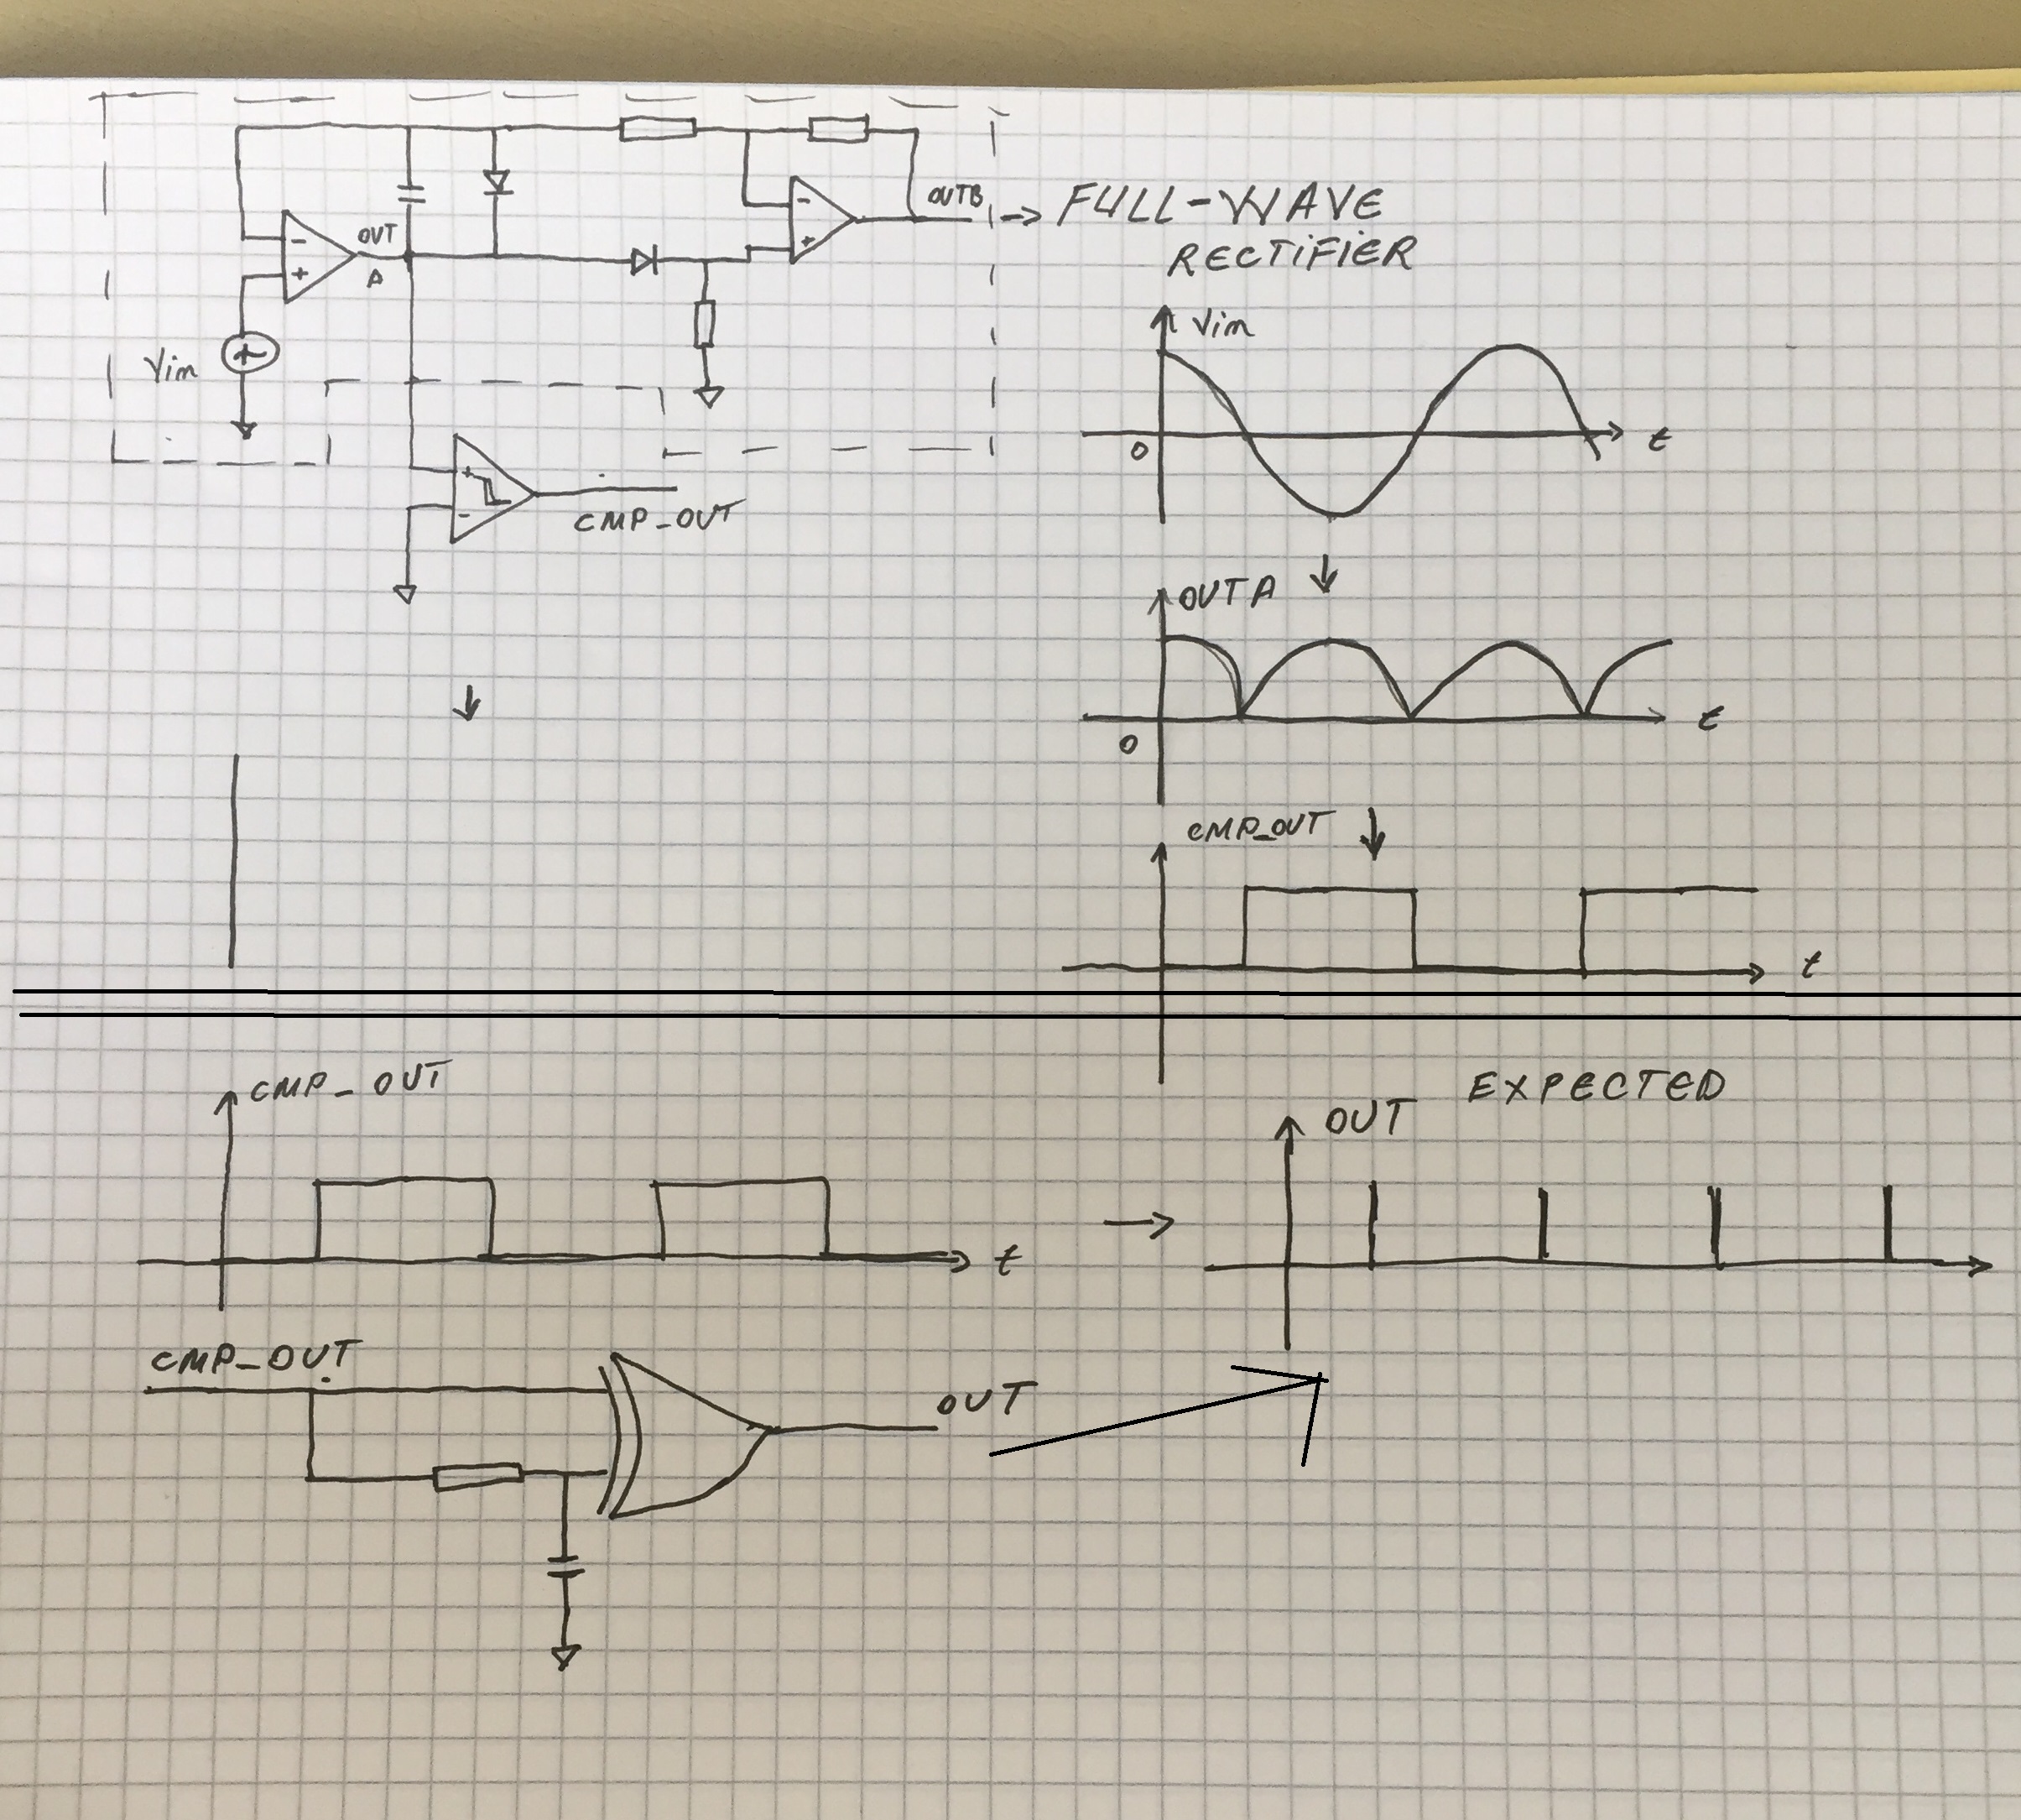 OUT
A
- +
Vin
OUTB
- +
FULL-WAVE
RECTIFIER
+ -
CMP_OUT
Vin
0
t
OUTA
0
t
CMP_OUT
t
CMP_OUT
t
EXPECTED
OUT
CMP_OUT
OUT